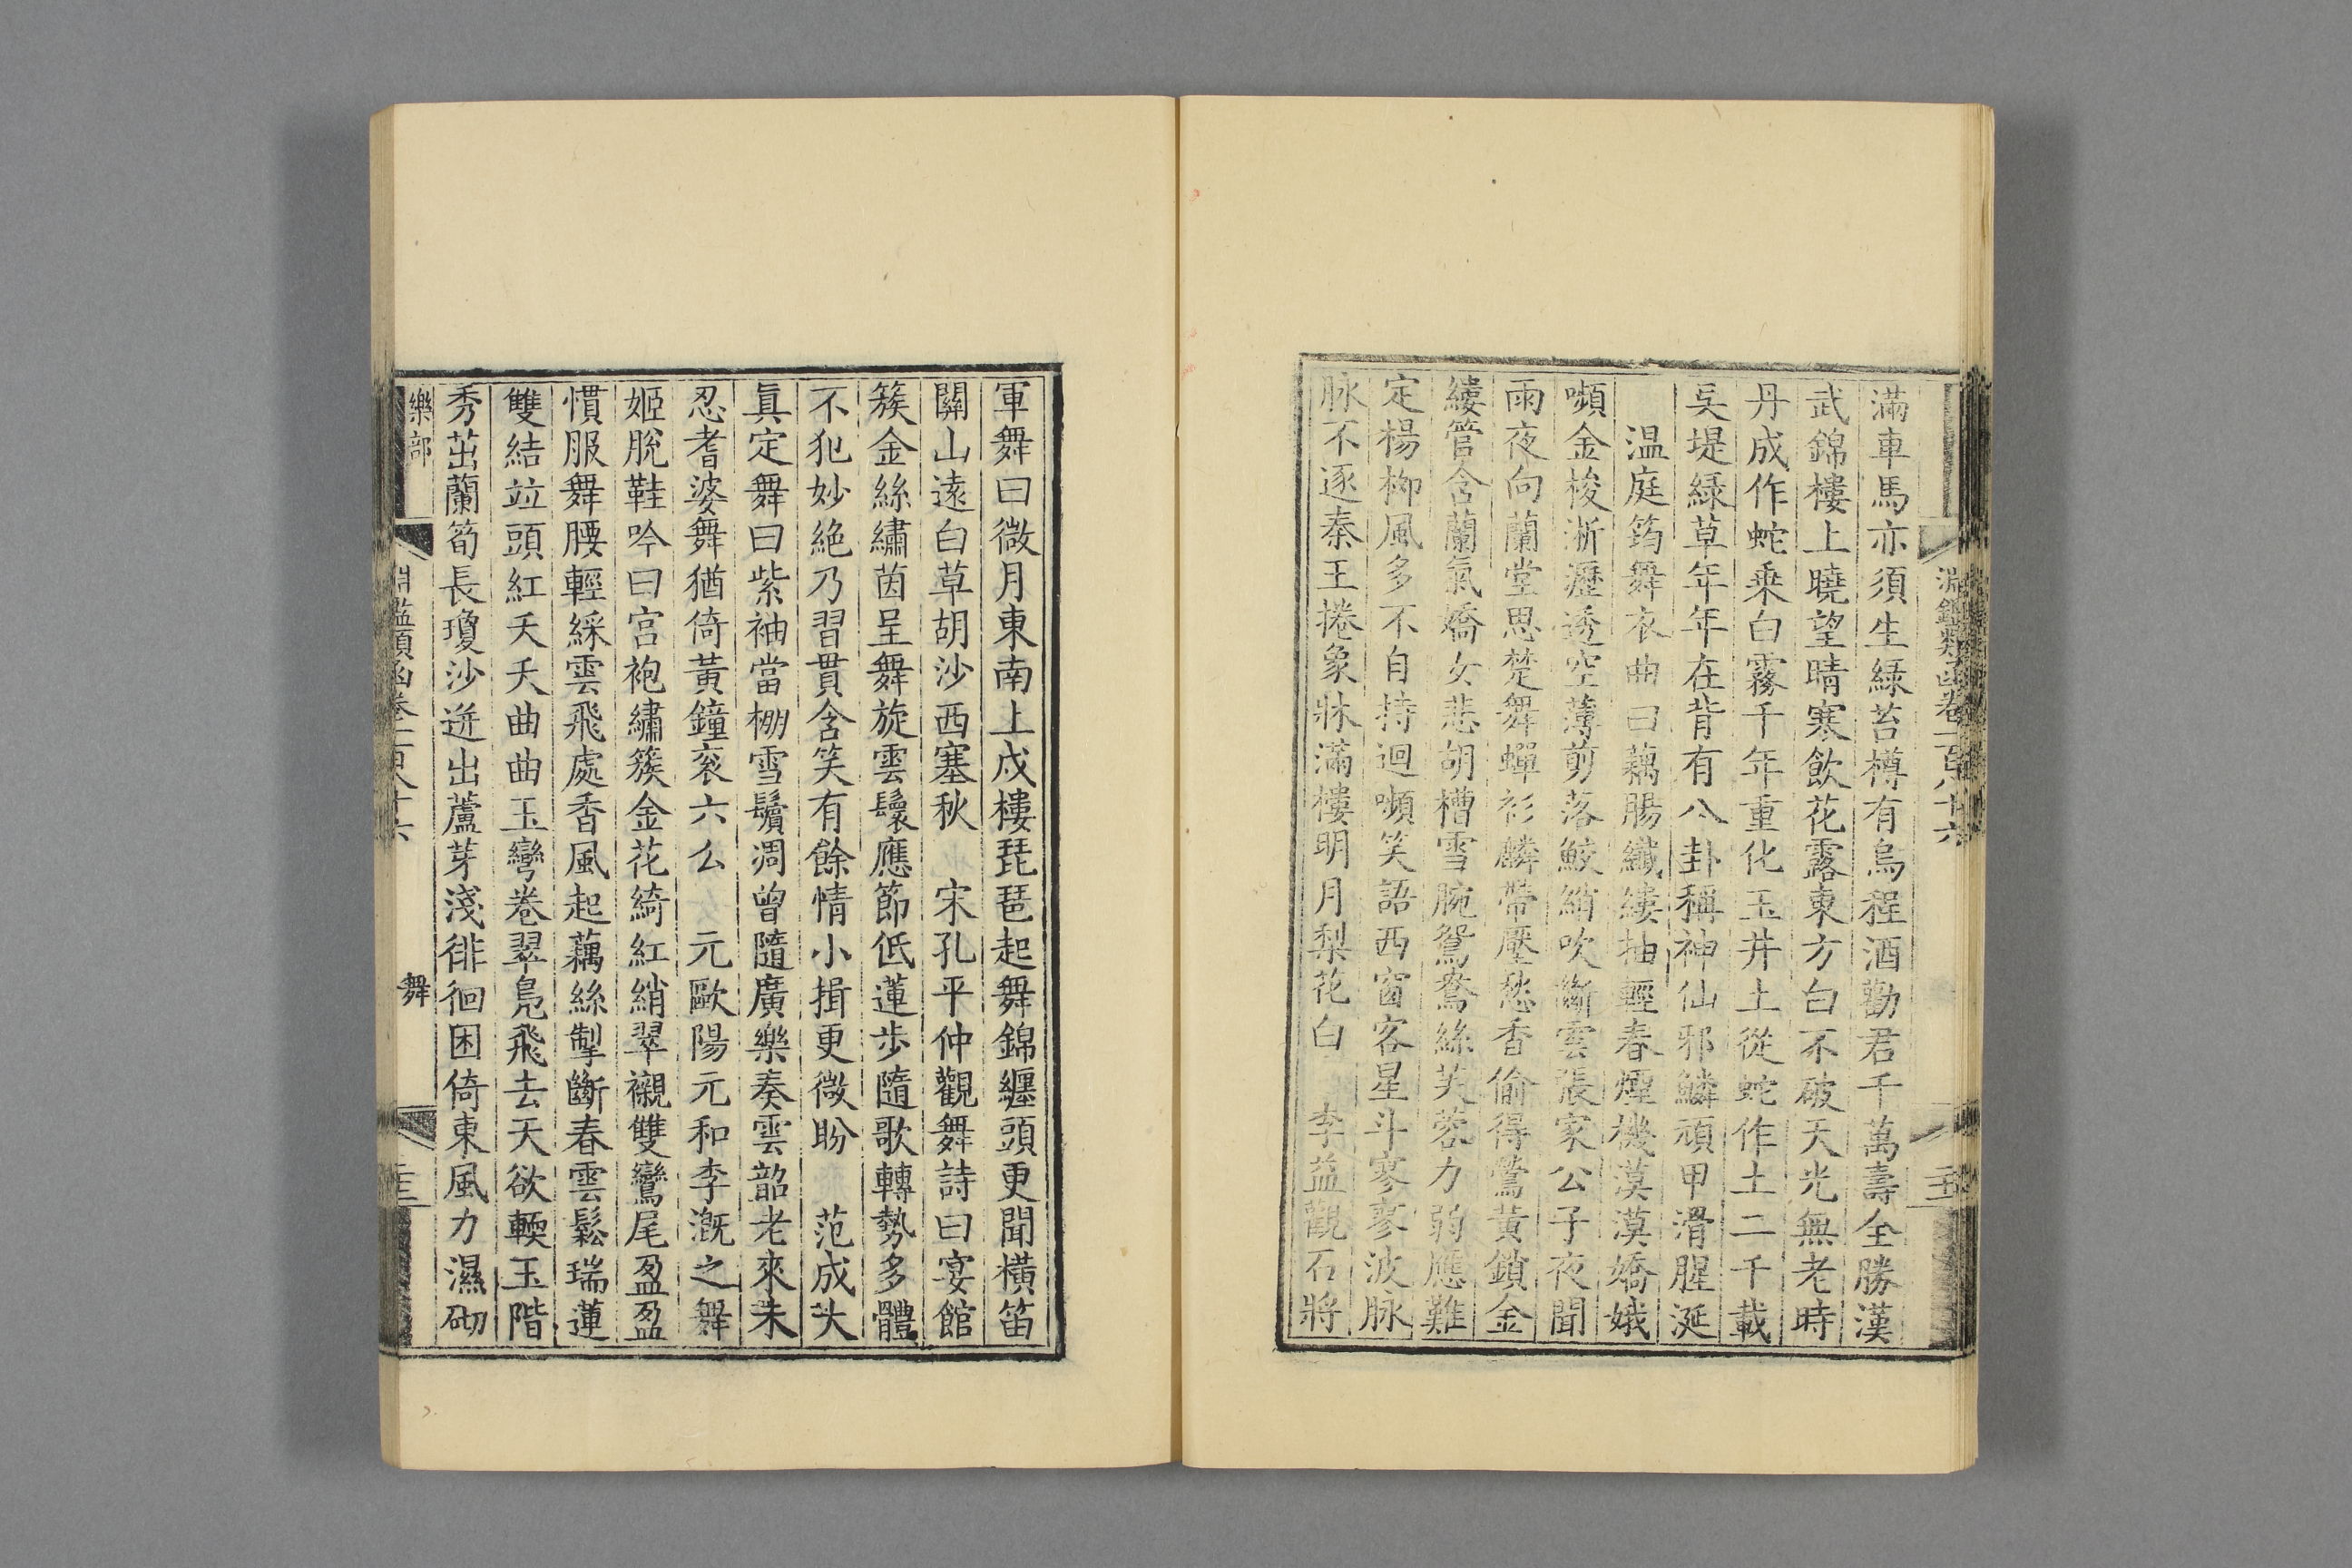 淵鑑類函卷一百八十六
滿車馬亦須生綠苔樽有烏程酒勸君千萬壽全勝漢
武錦樓上曉望晴寒飲花露東方白不破天光無老時
丹成作蛇乘白霧千年重化玉井土從蛇作土二千載
吳堤綠草年年在背有八卦稱神仙邪鱗頑甲滑腥涎
温庭筠舞衣曲曰藕腸纖縷抽輕春煙機漠漠嬌娥
嚬金梭淅瀝透空薄剪落鮫綃吹斷雲張家公子夜聞
雨夜向蘭堂思楚舞蟬衫麟帶壓愁香偷得鶯黃鎖金
縷管含蘭氣嬌女悲胡槽雪腕鴛鴦絲芙蓉力弱應難
定楊柳風多不自持迴嚬笑語西窗客星斗寥寥波脉
脉不逐秦王捲象牀滿樓明月梨花白　李益觀石將
軍舞曰微月東南上戍樓琵琶起舞錦纏頭更聞橫笛
關山遠白草胡沙西塞秋　宋孔平仲觀舞詩曰宴館
簇金絲繡茵呈舞旋雲鬟應節低蓮步隨歌轉勢多體
不犯妙絶乃習貫含笑有餘情小揖更微盼　范成大
真定舞曰紫袖當棚雪鬢凋曾隨廣樂奏雲韶老來未
忍耆婆舞猶倚黃鐘衮六幺　元歐陽元和李溉之舞
姬脫鞋吟曰宮袍繡簇金花綺紅綃翠襯雙鸞尾盈盈
慣服舞腰輕綵雲飛處香風起藕絲掣斷春雲鬆瑞蓮
雙結竝頭紅夭夭曲曲玉彎卷翠鳧飛去天欲輭玉階
秀茁蘭筍長瓊沙迸出蘆芽淺徘徊困倚東風力濕砌
樂部
淵鑑類函卷一百八十六
舞